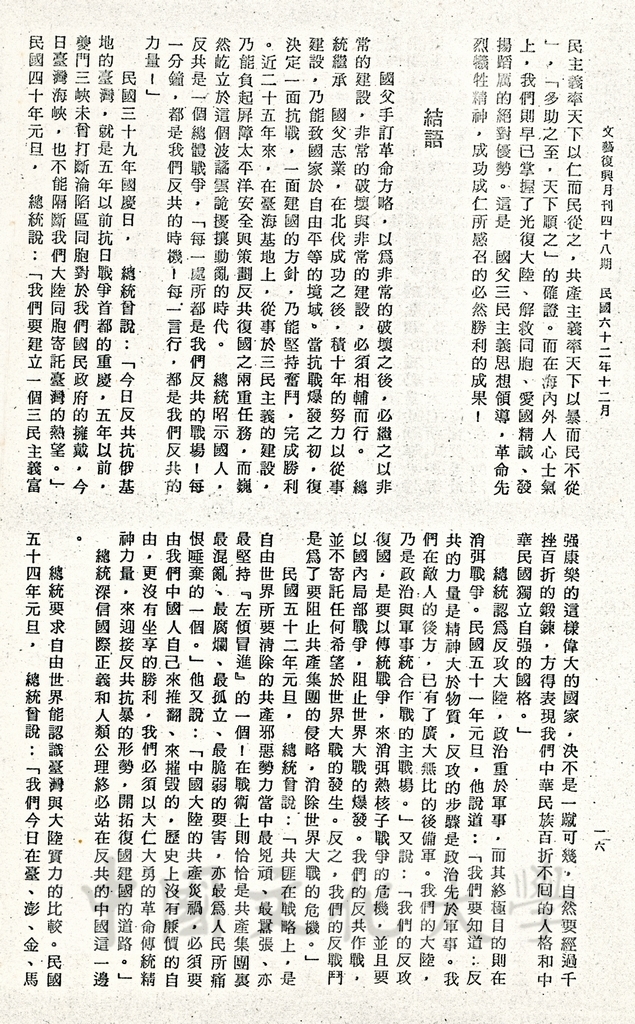 文藝復興月刊四十八期　民國六十二年十二月
民主義率天下以仁而民從之，共產主義率天下以暴而民不從
」，「多助之至，天下順之」的確證。而在海內外人心士氣
上，我們則早已掌握了光復大陸、解救同胞、愛國精誠、發
揚蹈厲的絕對優勢。這是　國父三民主義思想領導，革命先
烈犧牲精神，成功成仁所感召的必然勝利的成果！
結語
國父手訂革命方略，以爲非常的破壞之後，必繼之以非
常的建設，非常的破壞與非常的建設，必須相輔而行。　總
統繼承　國父志業，在北伐成功之後，積十年的努力以從事
建設，乃能致國家於自由平等的境域。當抗戰爆發之初，復
決定一面抗戰，一面建國的方針，乃能堅持奮鬥，完成勝利
。近二十五年來，在臺海基地上，從事於三民主義的建設，
乃能負起屏障太平洋安全與策劃反共復國之兩重任務，而巍
然屹立於這個波譎雲詭擾攘動亂的時代。　總統昭示國人，
反共是一個總體戰爭，「每一處所都是我們反共的戰場！每
一分鐘，都是我們反共的時機！每一言行，都是我們反共的
力量！」
民國三十九年國慶日，　總統曾說：「今日反共抗俄基
地的臺灣，就是五年以前抗日戰爭首都的重慶，五年以前，
夔門三峽未曾打斷淪陷區同胞對於我們國民政府的擁戴，今
日臺灣海峽，也不能隔斷我們大陸同胞寄託臺灣的熱望。」
民國四十年元旦，　總統說：「我們要建立一個三民主義富
强康樂的這樣偉大的國家，決不是一蹴可幾，自然要經過千
挫百折的鍛鍊，方得表現我們中華民族百折不回的人格和中
華民國獨立自强的國格。」
總統認爲反攻大陸，政治重於軍事，而其終極目的則在
消弭戰爭。民國五十一年元旦，他說道：「我們要知道：反
共的力量是精神大於物質，反攻的步驟是政治先於軍事。我
們在敵人的後方，已有了廣大無比的後備軍。我們的大陸，
乃是政治與軍事統合作戰的主戰場。」又說：「我們的反攻
復國，是要以傳統戰爭，來消弭熱核子戰爭的危機，並且要
以國內局部戰爭，阻止世界大戰的爆發。我們的反共作戰，
並不寄託任何希望於世界大戰的發生。反之，我們的反戰鬥
是爲了要阻止共產集團的侵略，消除世界大戰的危機。」
民國五十二年元旦，　總統曾說：「共匪在戰略上，是
自由世界所要淸除的共產邪惡勢力當中最兇頑、最囂張、亦
最堅持『左傾冒進』的一個！在戰術上則恰恰是共產集團裏
最混亂、最腐爛、最孤立、最脆弱的要害，亦最爲人民所痛
恨唾棄的一個。」他又說：「中國大陸的共產災禍，必須要
由我們中國人自己來推翻、來摧毀的，歷史上沒有廉價的自
由，更沒有坐享的勝利，我們必須以大仁大勇的革命傳統精
神力量，來迎接反共抗暴的形勢，開拓復國建國的道路。」
總統深信國際正義和人類公理終必站在反共的中國這一邊
。
總統要求自由世界能認識臺灣與大陸實力的比較。民國
五十四年元旦，　總統曾說：「我們今日在臺、澎、金、馬
一六
中國文化大學